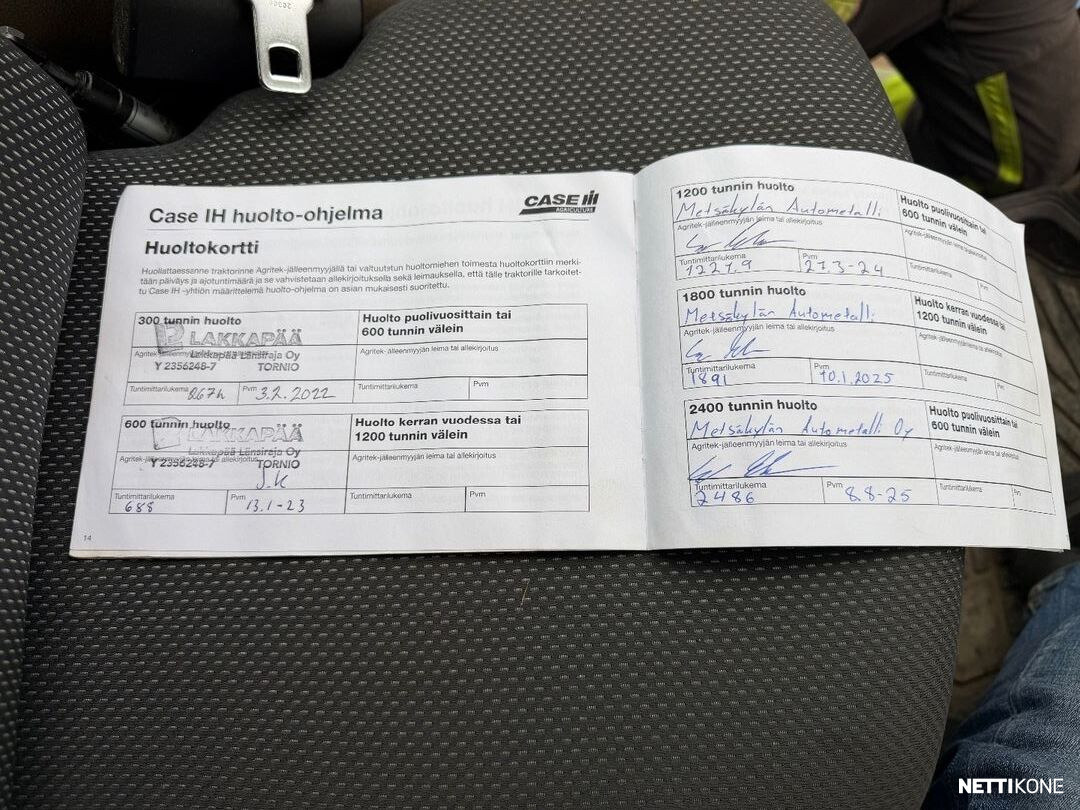 Case IH huolto-ohjelma
CASE IH
AGRICULTURE
Huoltokortti
Huollattaessanne traktorinne Agritek-jälleenmyyjällä tai valtuutetun huoltomiehen toimesta huoltokorttiin merki-
tään päiväys ja ajotuntimäärä ja se vahvistetaan allekirjoituksella sekä leimauksella, että tälle traktorille tarkoitet-
tu Case IH -yhtiön määrittelemä huolto-ohjelma on asian mukaisesti suoritettu.
300 tunnin huolto
LAKKAPÄÄ
Agritek-jälleenmyyjän leima tai allekirjoitus
Lakkapää Länsiraja Oy
Y 2356248-7 TORNIO
Tuntimittarilukema 267h Pvm 3.2.2022
Huolto puolivuosittain tai
600 tunnin välein
Agritek-jälleenmyyjän leima tai allekirjoitus
Tuntimittarilukema Pvm
600 tunnin huolto
LAKKAPÄÄ
Lakkapää Länsiraja Oy
Agritek-jälleenmyyjän leima tai allekirjoitus
Y 2356248-7 TORNIO
J.K
Tuntimittarilukema 688 Pvm 13.1-23
Huolto kerran vuodessa tai
1200 tunnin välein
Agritek-jälleenmyyjän leima tai allekirjoitus
Tuntimittarilukema Pvm
14
1200 tunnin huolto
Metsäkylän Autometalli
Agritek-jälleenmyyjän leima tai allekirjoitus
Tuntimittarilukema 1227,9 Pvm 27.3-24
Huolto puolivuosittain tai
600 tunnin välein
Agritek-jälleenmyyjän leima tai allekirjoitus
Tuntimittarilukema Pvm
1800 tunnin huolto
Metsäkylän Autometalli
Agritek-jälleenmyyjän leima tai allekirjoitus
Tuntimittarilukema 1891 Pvm 10.1.2025
Huolto kerran vuodessa tai
1200 tunnin välein
Agritek-jälleenmyyjän leima tai allekirjoitus
Tuntimittarilukema Pvm
2400 tunnin huolto
Metsäkylän Autometalli Oy
Agritek-jälleenmyyjän leima tai allekirjoitus
Tuntimittarilukema 2486 Pvm 8.8-25
Huolto puolivuosittain tai
600 tunnin välein
Agritek-jälleenmyyjän leima tai allekirjoitus
Tuntimittarilukema Pvm
NETTIKONE